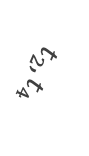 t2, t4